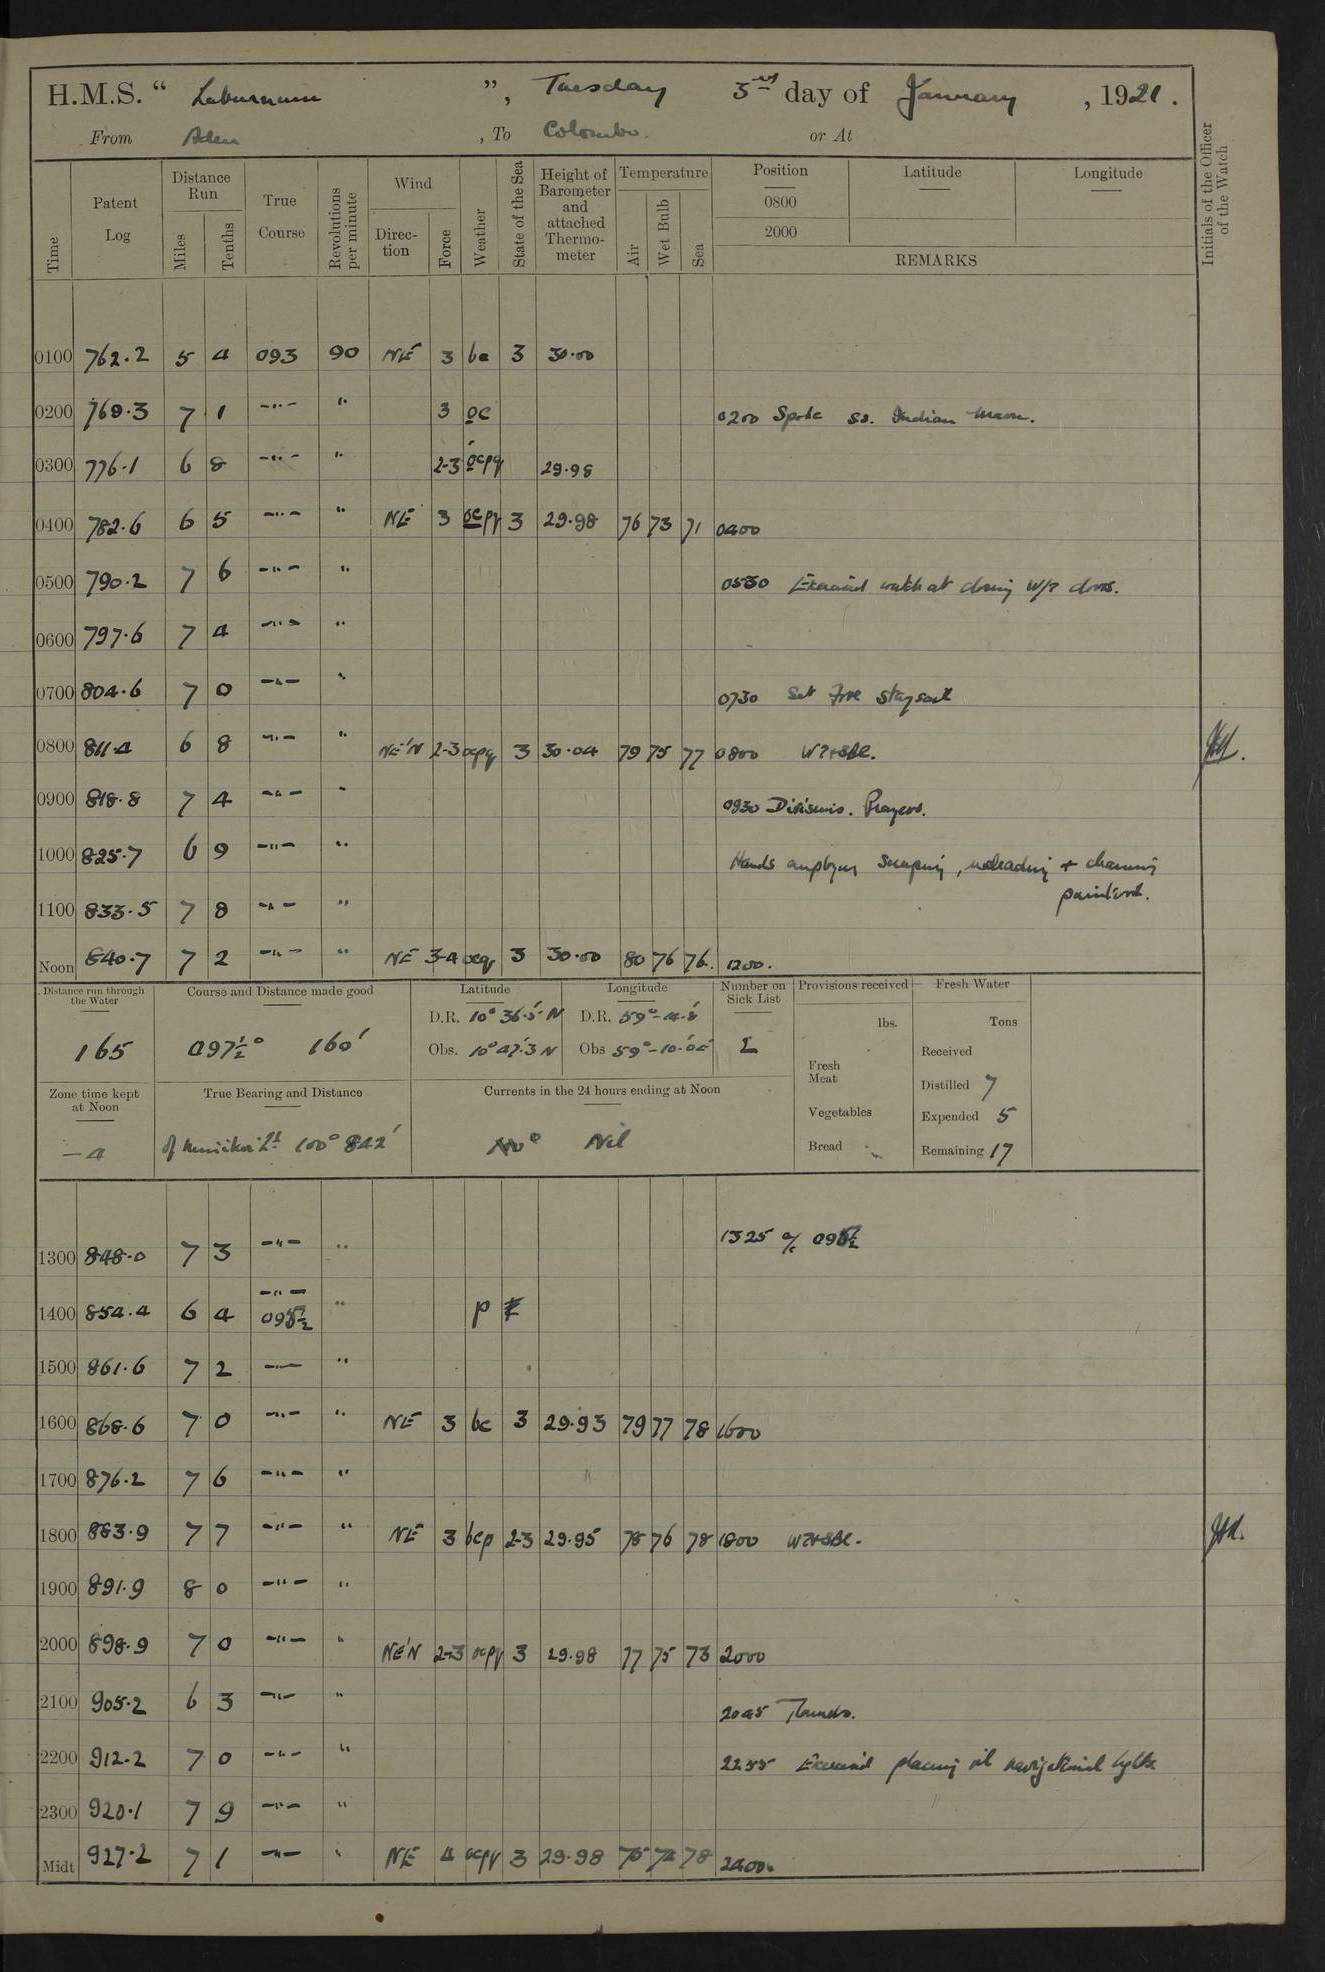 H.M.S. “ Laburnum ”, Tuesday 3rd day of January, 1921.
From Aden, To Colombo. or At
Time
Patent Log
Distance Run
Miles
Tenths
True Course
Revolutions per minute
Wind
Direction
Force
Weather
State of the Sea
Height of Barometer and attached Thermometer
Temperature
Air
Wet Bulb
Sea
Position
0800
2000
Latitude
Longitude
REMARKS
Initials of the Officer of the Watch
0100 762.2 5 4 093 90 NE 3 bc 3 30.00
0200 769.3 7 1 –"– " 3 oc 0200 Spoke ss. Indian
0300 776.1 6 8 –"– " 2-3 ocpq 29.98
0400 782.6 6 5 –"– " NE 3 ocpq 3 29.98 76 73 71 0400
0500 790.2 7 6 –"– " 0530 Exercised watch at closing W/T doors.
0600 797.6 7 4 –"– "
0700 804.6 7 0 –"– " 0730 Set Fore staysail
0800 811.4 6 8 –"– " NE'N 2-3 ocpq 3 30.04 79 75 77 0800
0900 818.8 7 4 –"– " 0930 Divisions. Prayers.
1000 825.7 6 9 –"– " Hands employed scraping, redleading + cleaning
paintwork.
1100 833.5 7 8 –"– "
Noon 840.7 7 2 –"– " NE 3-4 ocq 3 30.00 80 76 76. 1200.
Distance run through the Water
165
Course and Distance made good
097½° 160'
Latitude
D.R. 10° 36.5' N
Obs. 10° 47.3' N
Longitude
D.R. 59° - 4.8'
Obs 59° - 10.0
Number on Sick List
Provisions received
lbs.
Fresh Meat
Vegetables
Bread
Fresh Water
Tons
Received
Distilled 7
Expended 5
Remaining 17
Zone time kept at Noon
– 4
True Bearing and Distance
of Minikoi Lt 100° 842'
Currents in the 24 hours ending at Noon
Nil
1300 848.0 7 3 –"– " 1325 a/c
1400 854.4 6 4 –"– " p
1500 861.6 7 2 –"– "
1600 868.6 7 0 –"– " NE 3 bc 3 29.93 79 77 78 1600
1700 876.2 7 6 –"– "
1800 883.9 7 7 –"– " NE 3 bcp 2-3 29.95 78 76 78 1800
1900 891.9 8 0 –"– "
2000 898.9 7 0 –"– " NE'N 2-3 ocpq 3 29.98 77 75 73 2000
2100 905.2 6 3 –"– " 2045 Rounds.
2200 912.2 7 0 –"– " 2255 Exercised placing oil navigational lights
2300 920.1 7 9 –"– "
Midt 927.2 7 1 –"– " NE 4 ocpq 3 29.98 75 74 78 2400.